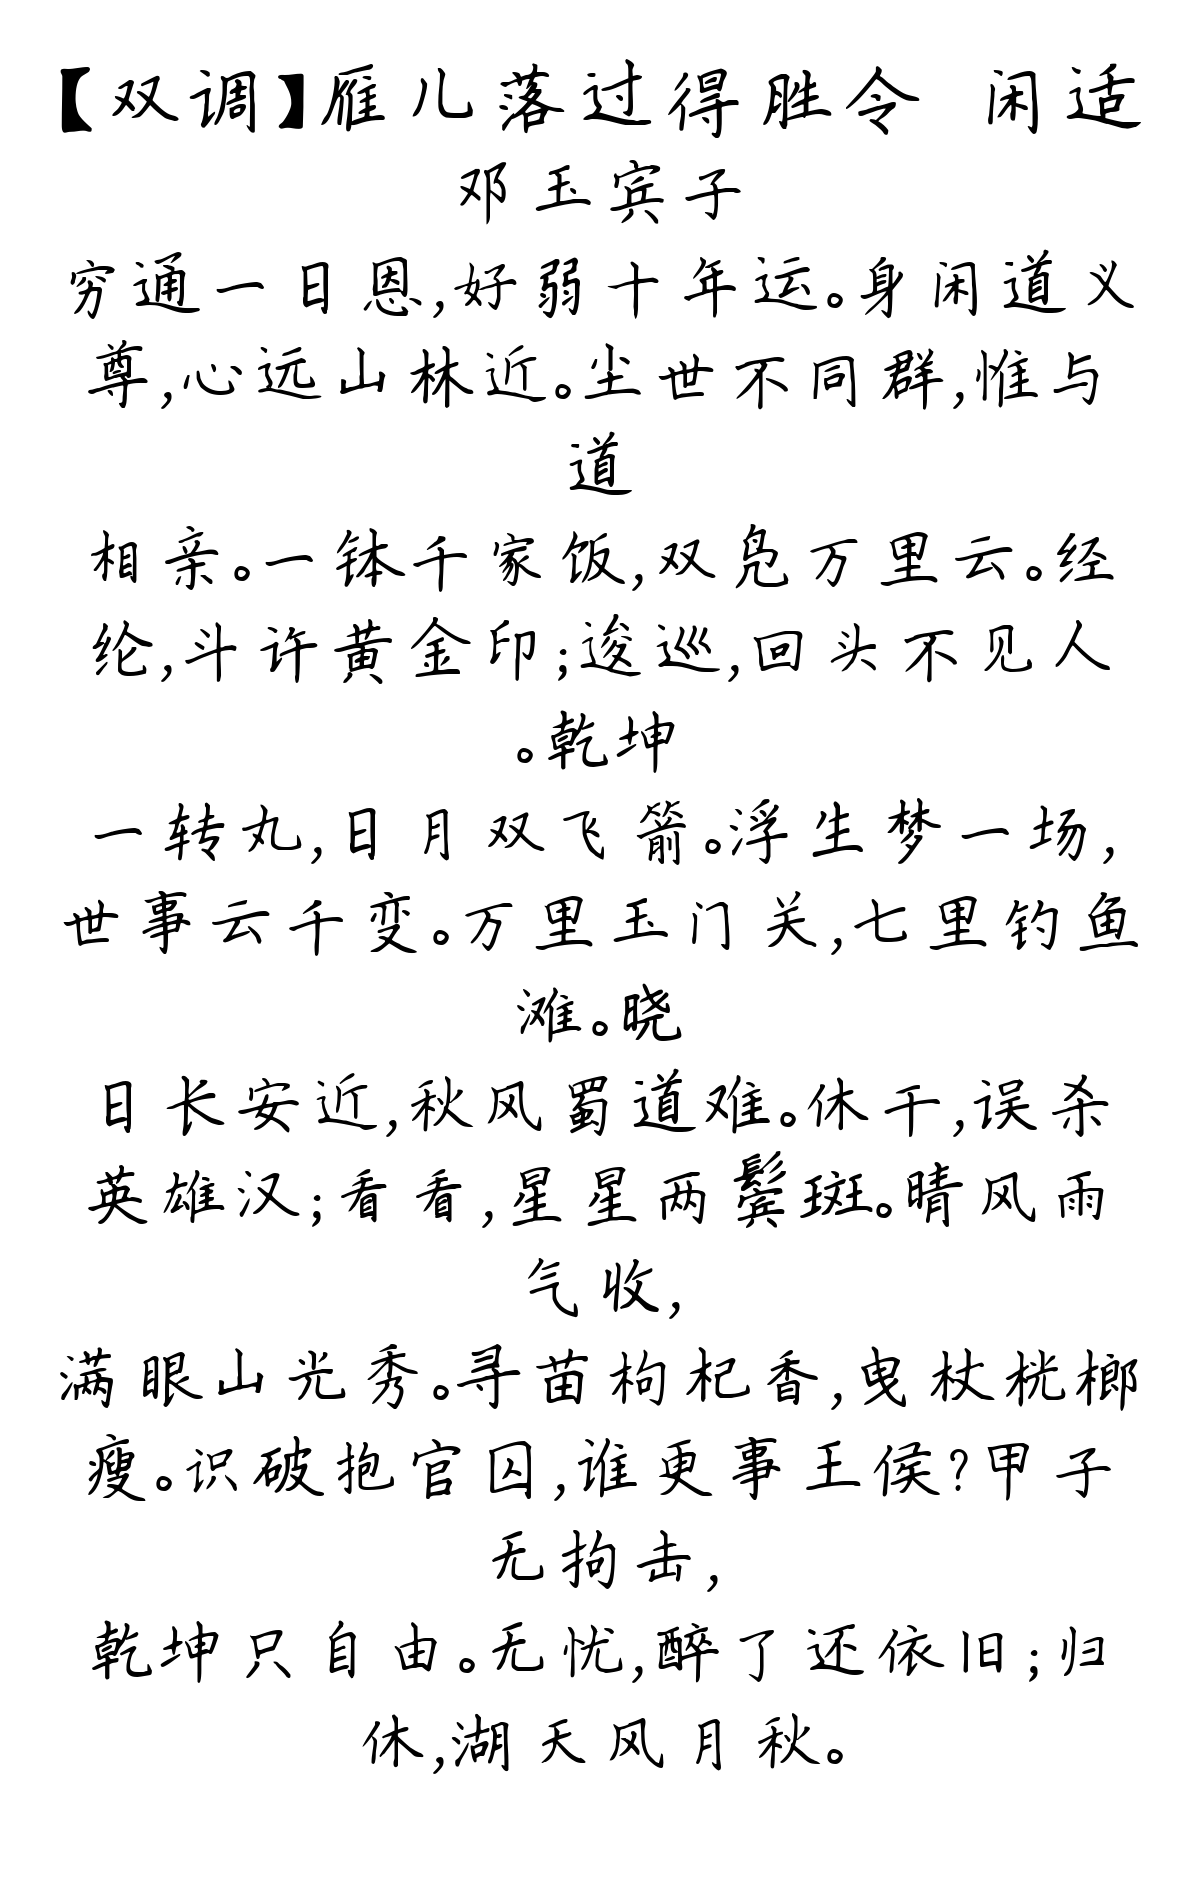 【双调】雁儿落过得胜令 闲适
邓玉宾子
穷通一日恩,好弱十年运。身闲道义
尊,心远山林近。尘世不同群,惟与
道
相亲。一钵千家饭,双凫万里云。经
纶,斗许黄金印;逡巡,回头不见人
。乾坤
一转丸,日月双飞箭。浮生梦一场,
世事云千变。万里玉门关,七里钓鱼
滩。晓
日长安近,秋风蜀道难。休干,误杀
英雄汉;看看,星星两鬓斑。晴风雨
气收,
满眼山光秀。寻苗枸杞香,曳杖桄榔
瘦。识破抱官囚,谁更事王侯?甲子
无拘击,
乾坤只自由。无忧,醉了还依旧;归
休,湖天风月秋。